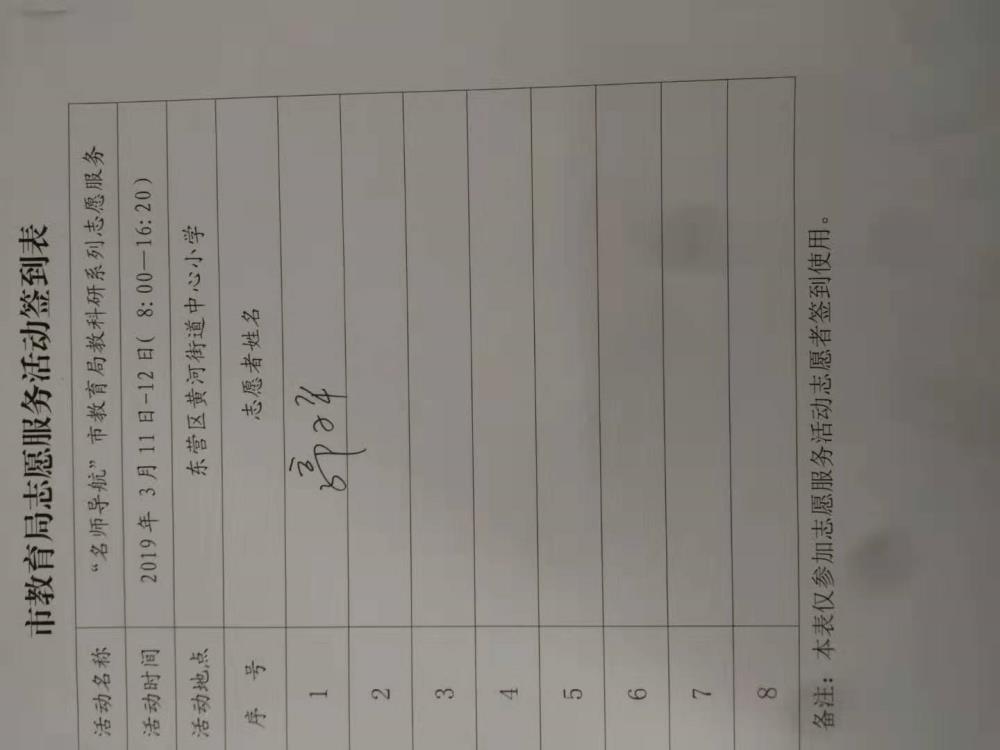 市教育局志愿服务活动签到表
活动名称 “名师导航”市教育局教科研系列志愿服务
活动时间 2019年 3月11日-12日( 8:00—16:20)
活动地点 东营区黄河街道中心小学
序 号 志愿者姓名
1
2
3
4
5
6
7
8
备注：本表仅参加志愿服务活动志愿者签到使用。